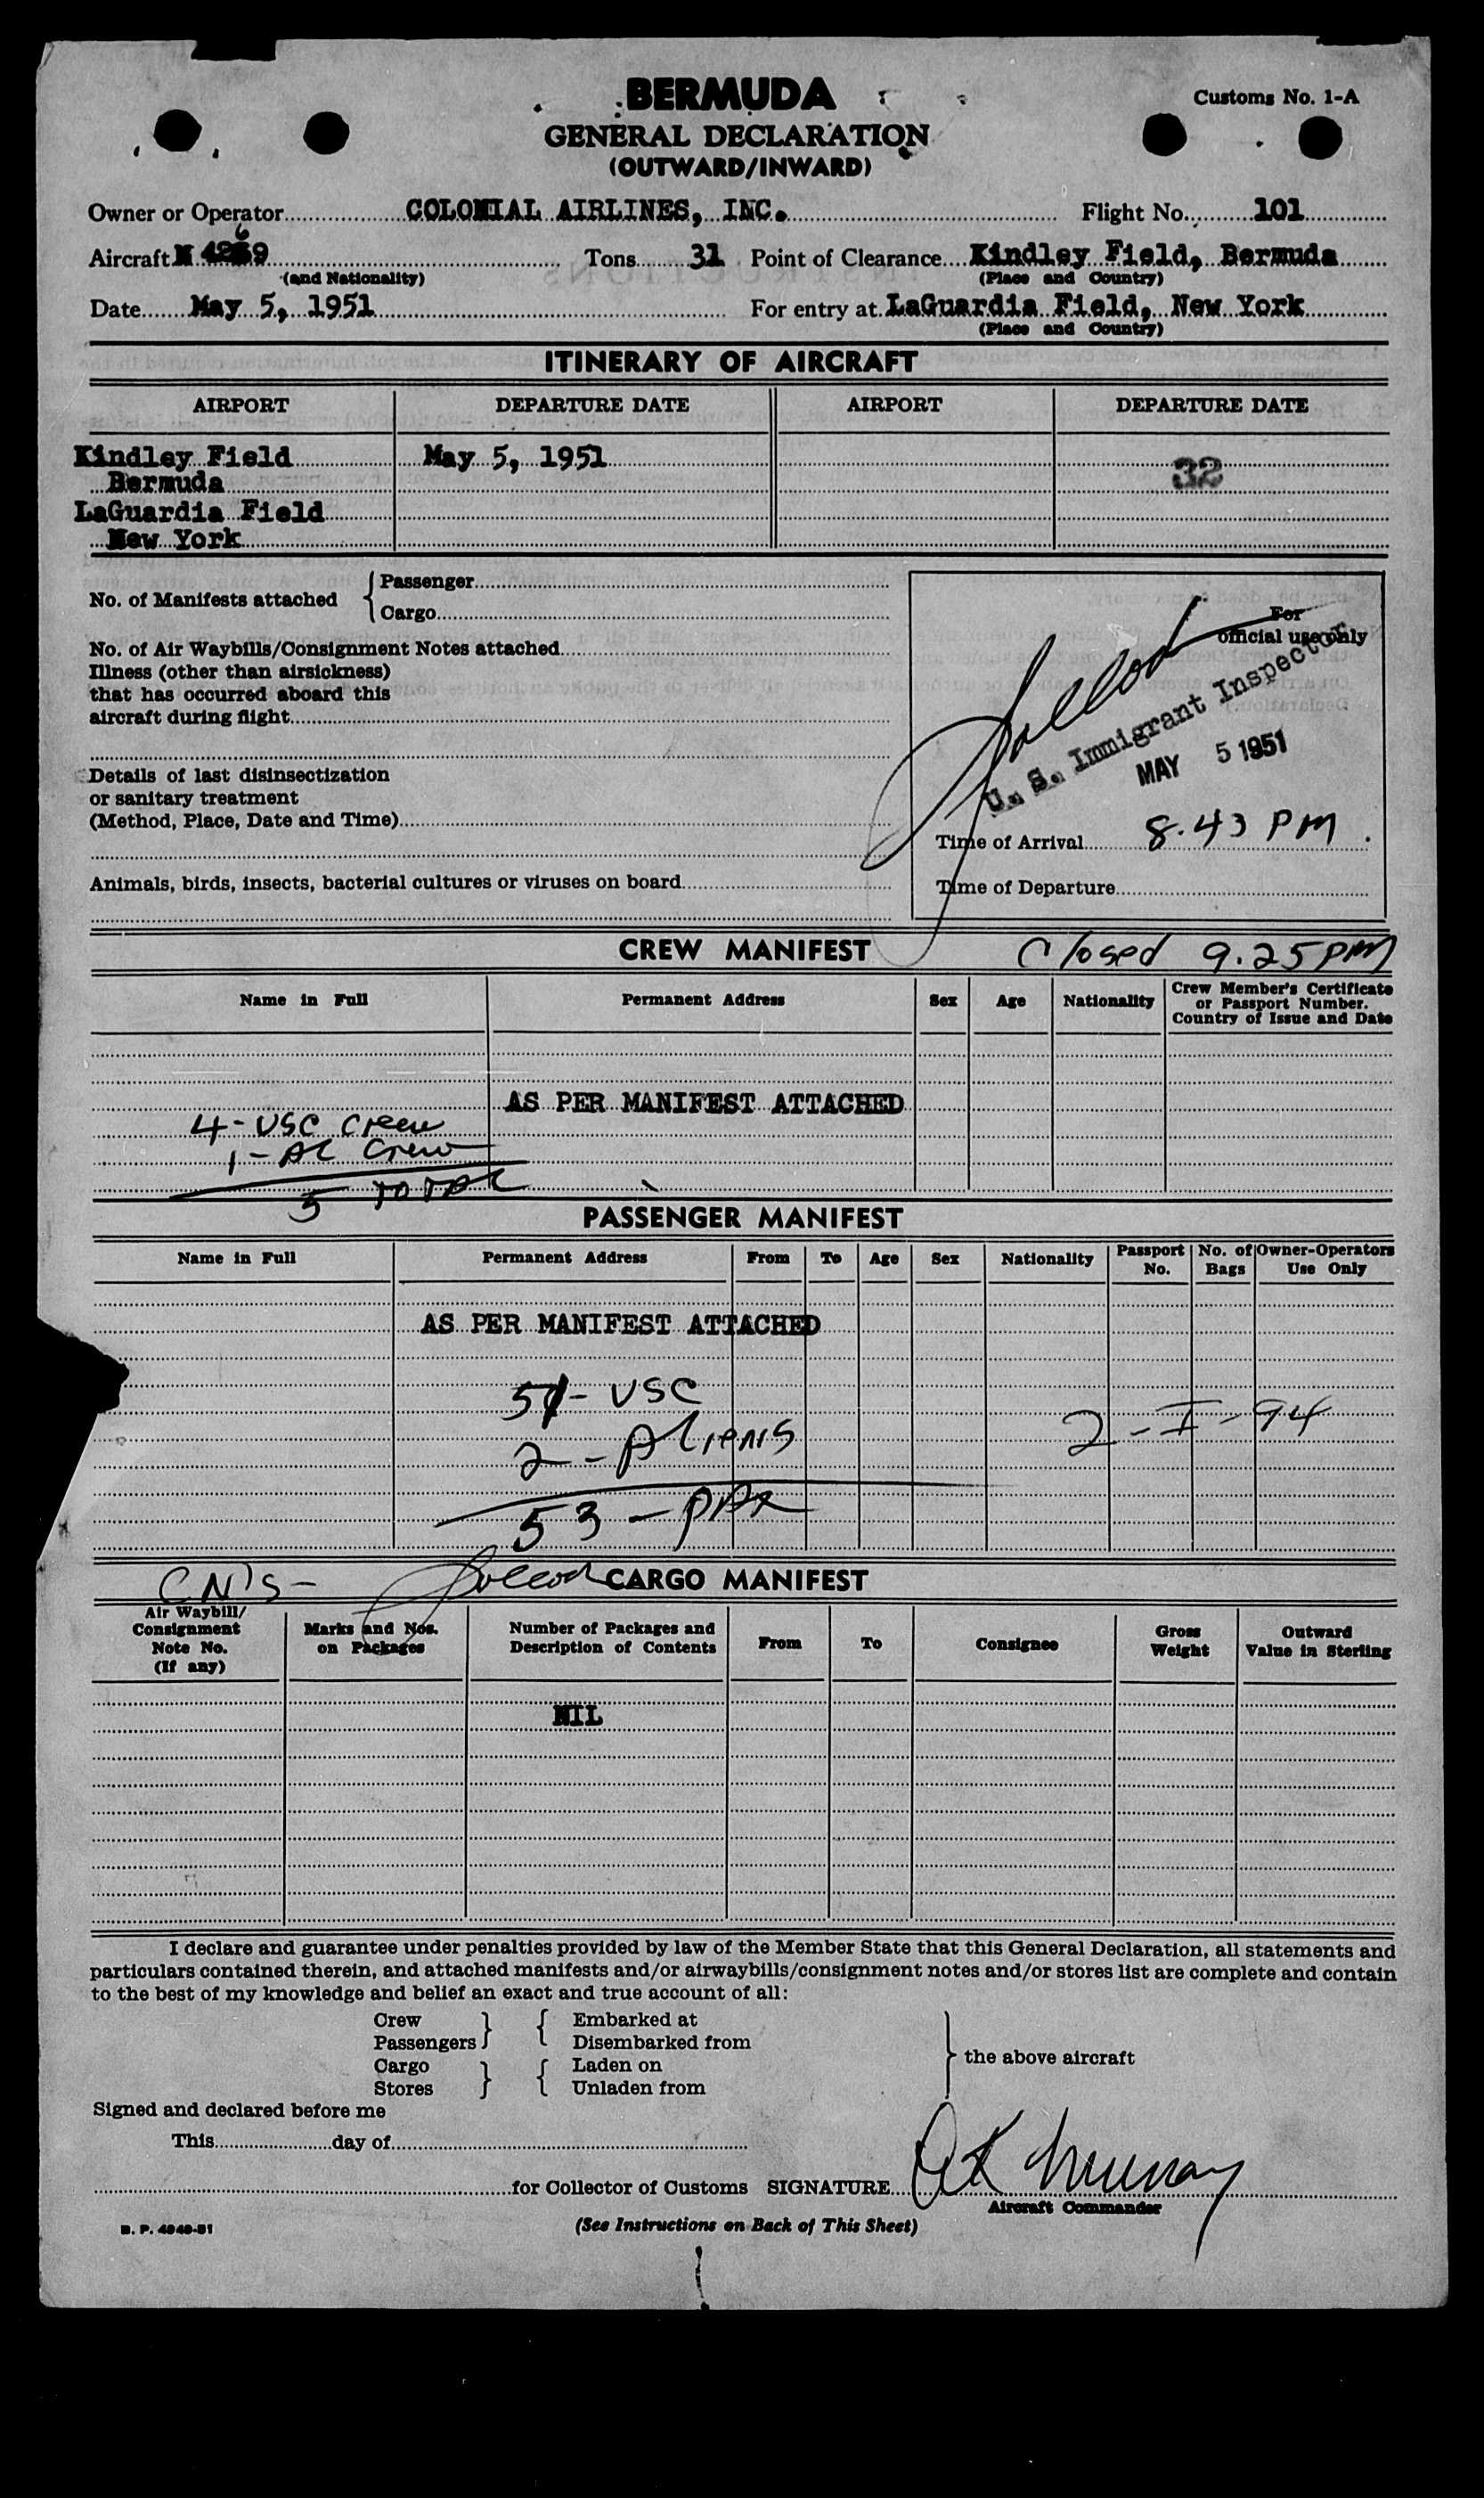 BERMUDA
Customs No. 1-A
GENERAL DECLARATION
(OUTWARD/INWARD)
Owner or Operator COLONIAL AIRLINES, INC. Flight No. 101
Aircraft N 4269 Tons 31 Point of Clearance Kindley Field, Bermuda
(and Nationality) (Place and Country)
Date May 5, 1951 For entry at LaGuardia Field, New York
(Place and Country)
ITINERARY OF AIRCRAFT
AIRPORT DEPARTURE DATE AIRPORT DEPARTURE DATE
Kindley Field May 5, 1951
Bermuda 32
LaGuardia Field
New York
No. of Manifests attached { Passenger
Cargo
For
official use only
No. of Air Waybills/Consignment Notes attached
Illness (other than airsickness)
that has occurred aboard this
aircraft during flight
U. S. Immigrant Inspector
MAY 5 1951
Details of last disinsectization
or sanitary treatment
(Method, Place, Date and Time)
Time of Arrival 8.43 PM
Animals, birds, insects, bacterial cultures or viruses on board
Time of Departure
CREW MANIFEST Closed 9.25 PM
Name in Full Permanent Address Sex Age Nationality Crew Member's Certificate or Passport Number. Country of Issue and Date
AS PER MANIFEST ATTACHED
4 - USC Crew
1 - AL Crew
5 TOTAL
PASSENGER MANIFEST
Name in Full Permanent Address From To Age Sex Nationality Passport No. No. of Bags Owner-Operators Use Only
AS PER MANIFEST ATTACHED
51 - USC
2 - Aliens 2 - I - 94
53 - PAX
CN'S - CARGO MANIFEST
Air Waybill/ Consignment Note No. (If any) Marks and Nos. on Packages Number of Packages and Description of Contents From To Consignee Gross Weight Outward Value in Sterling
NIL
I declare and guarantee under penalties provided by law of the Member State that this General Declaration, all statements and
particulars contained therein, and attached manifests and/or airwaybills/consignment notes and/or stores list are complete and contain
to the best of my knowledge and belief an exact and true account of all:
Crew } { Embarked at
Passengers Disembarked from
Cargo } { Laden on } the above aircraft
Stores Unladen from
Signed and declared before me
This day of
for Collector of Customs SIGNATURE
Aircraft Commander
B. P. 4949-51
(See Instructions on Back of This Sheet)